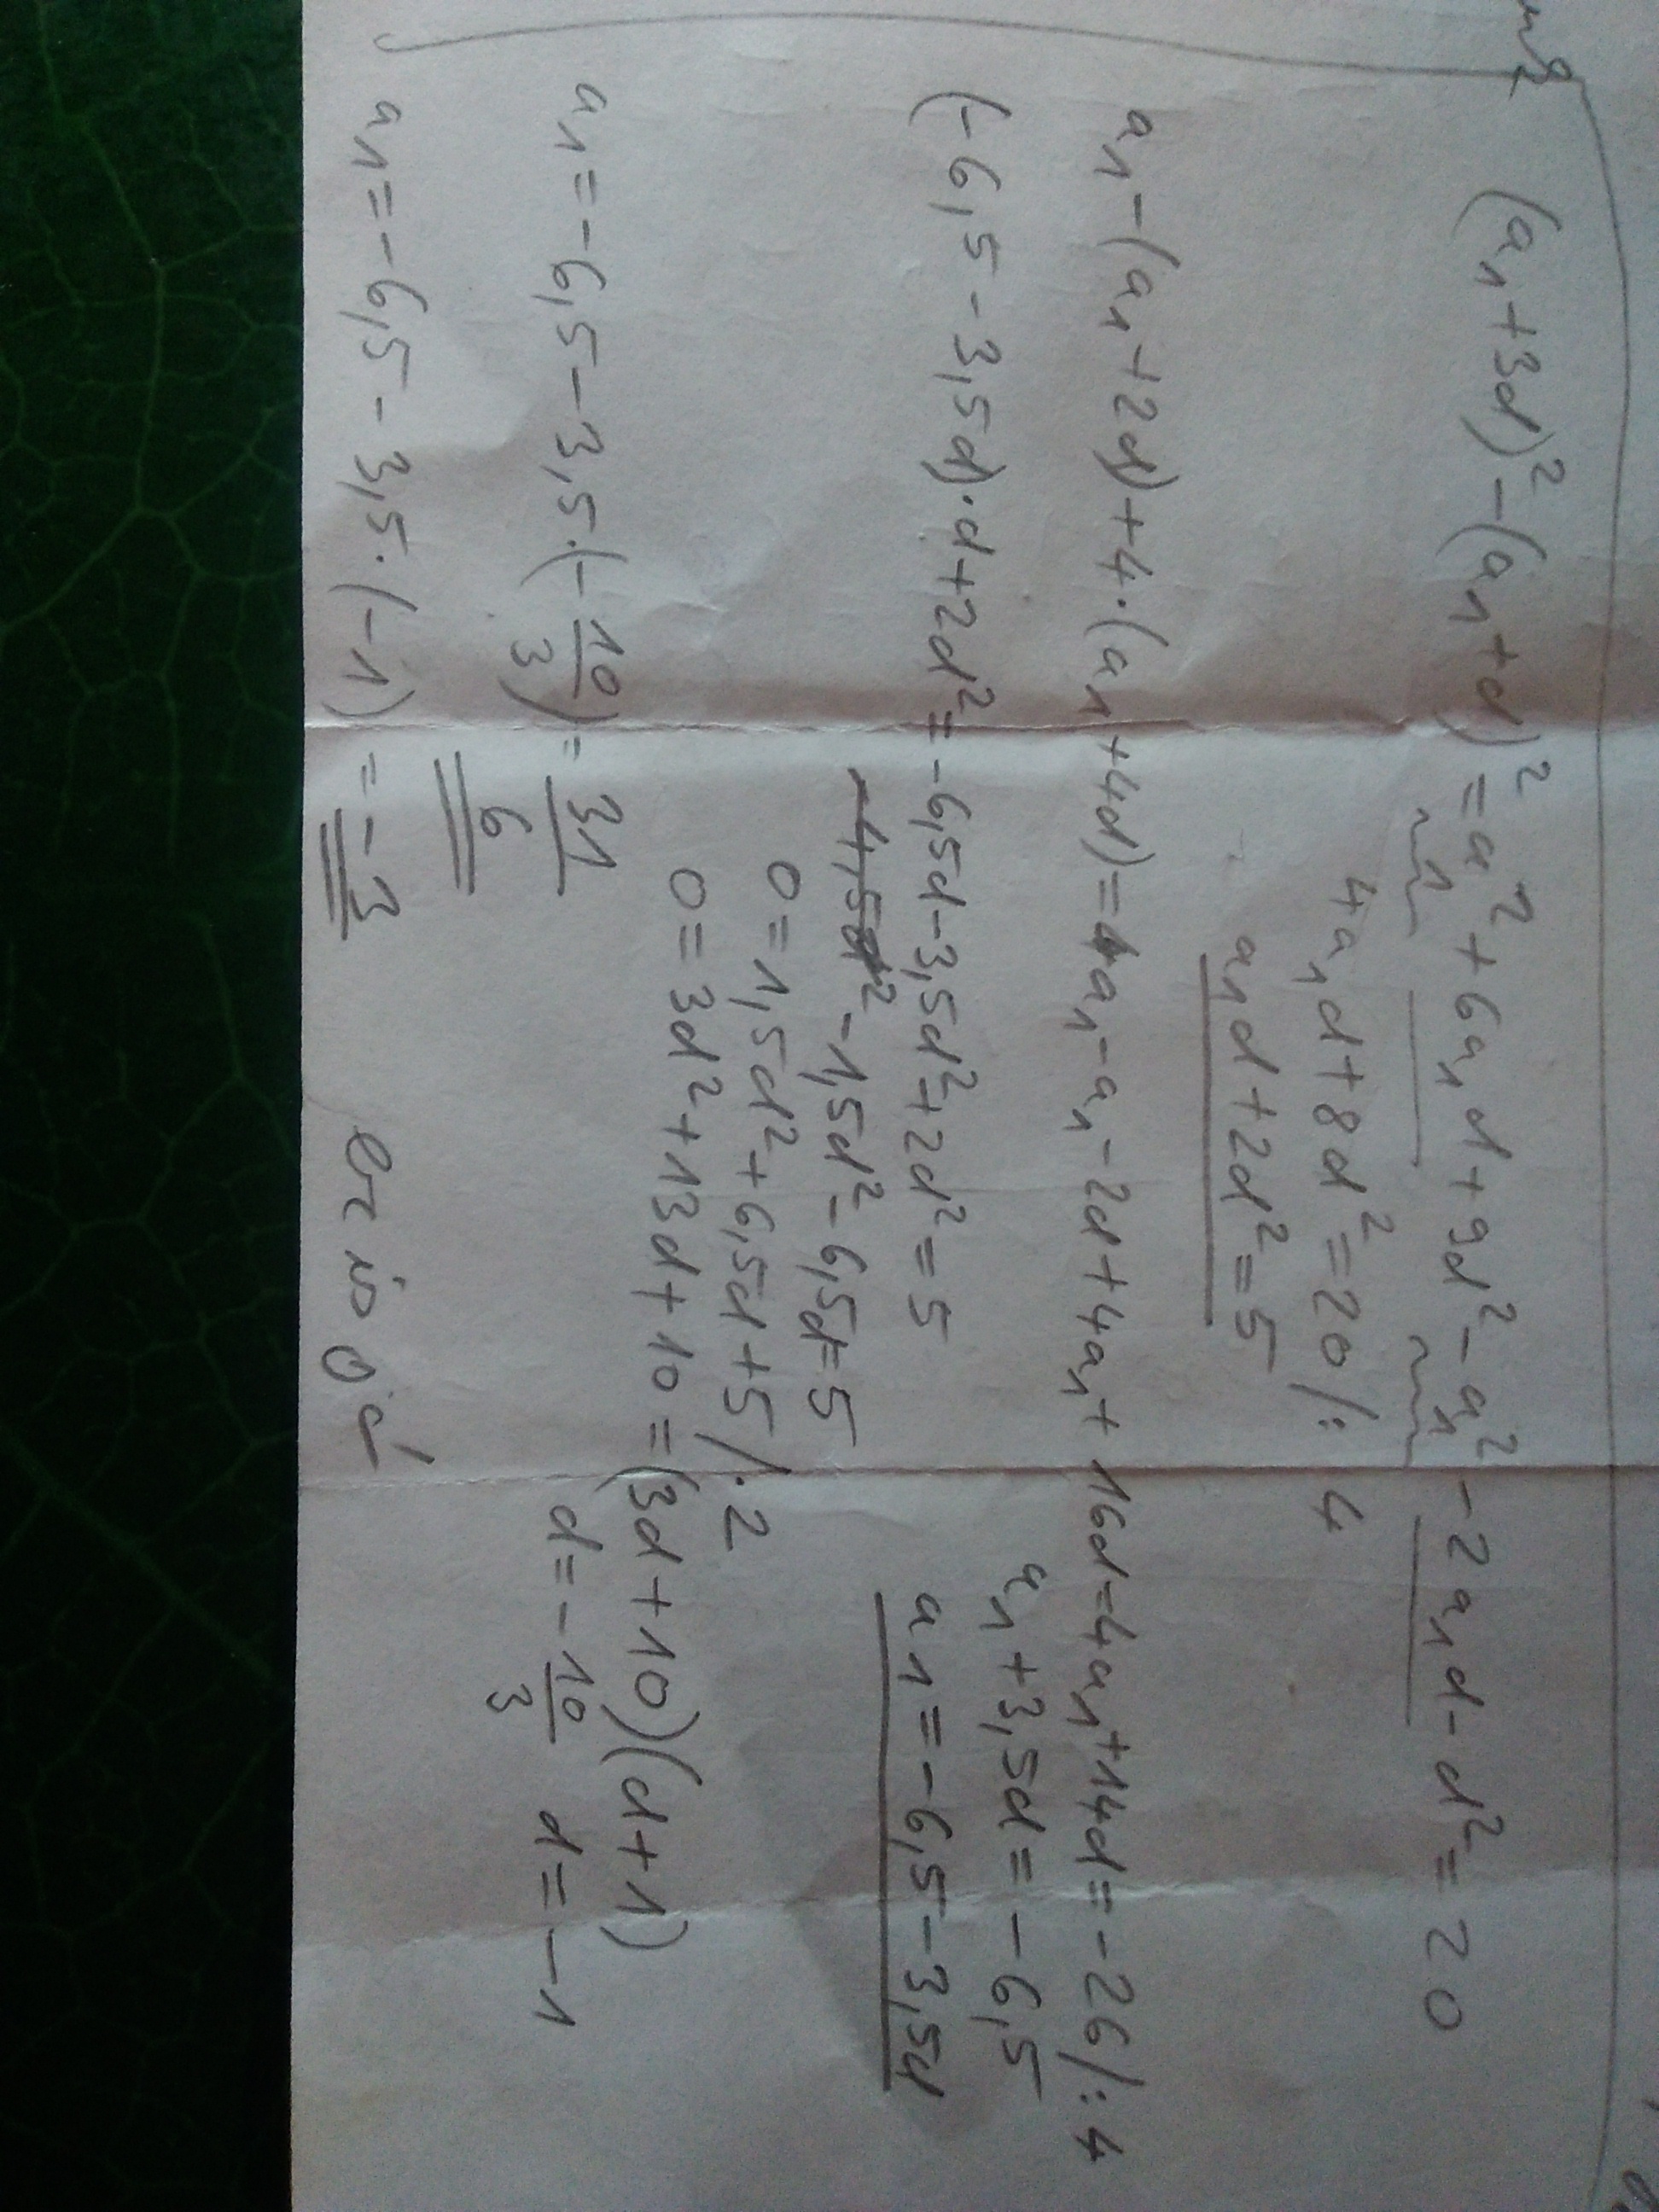 (a₁+3d)²-(a₁+d)²=a₁²+6a₁d+9d²-a₁²-2a₁d-d²=20
4a₁d+8d²=20/:4
a₁d+2d²=5
a₁-(a₁+2d)+4·(a₁+4d)=a₁-a₁-2d+4a₁+16d=4a₁+14d=-26/:4
a₁+3,5d=-6,5
a₁=-6,5-3,5d
(-6,5-3,5d)·d+2d²=-6,5d-3,5d²+2d²=5
-4,5d²-1,5d²-6,5d=5
0=1,5d²+6,5d+5/·2
0=3d²+13d+10=(3d+10)(d+1)
d=-10/3 d=-1
a₁=-6,5-3,5·(-10/3)=31/6
a₁=-6,5-3,5·(-1)=-3